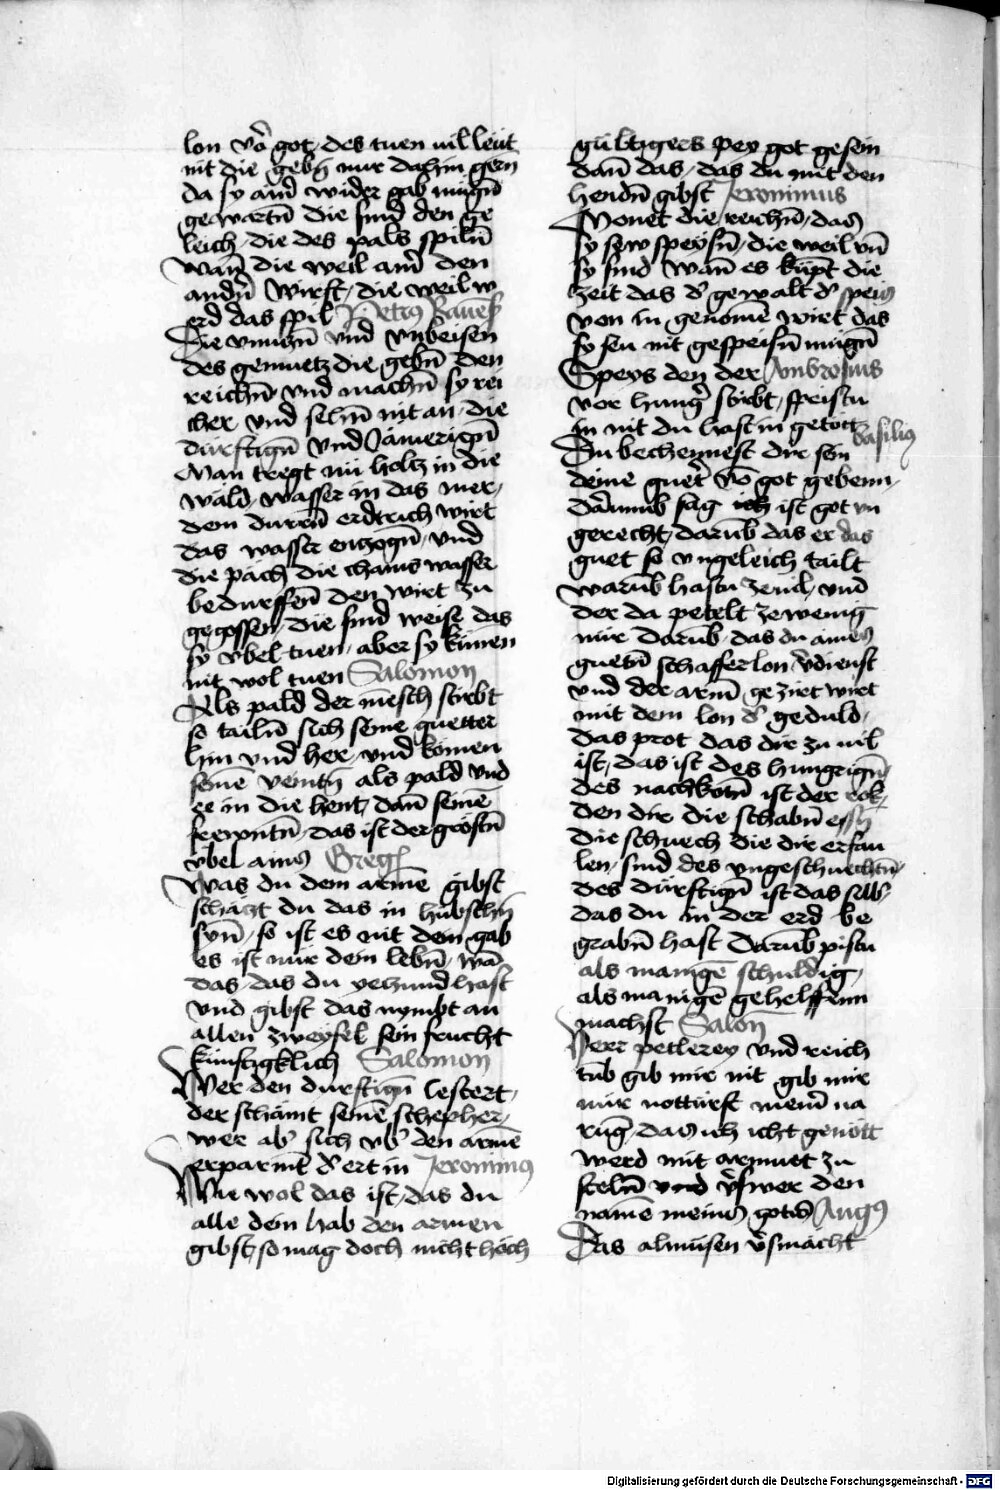 lon võ got, des tuen uil leut
nit die gebñ nur dahin gern
da sy and̄ wider gab mugñ
gewartñ die sind den ge
leich, die des pals spilñ
wañ die weil ainr̄ den
andrñ wirft, die weil w
erd das spil Petrus Rauēs
Die vnuczñ vnd vnbeisen
des gemuetz die gebñ den
reichñ vnd machñ sy rei
cher vnd sehñ nit an, die
dürftigñ vnd Jamerigñ
Man tregt nit holtz in die
wäld, wasser in das mer,
dem durrñ erdtrich wirt
das wasser enzogñ, vnd
die päch die chains wasser
bedurffeñ den wirt zu
gegossen, die sind weise das
sy vbel tuen, aber sy künen
nit wol tuen Salomon
Als pald der mēsch stirbt
so tailñ sich seine guetter
hin vnd her, vnd komen
seinē veintñ als pald vnd
ee in die hent, dañ seinē
frewntñ, das ist der gröstñ
vbel ains Greg
Was du dem armē gibst
schätzt du das in hübschñ
synñ, so ist es nit dein gab
es ist nur dein lebñ, wañ
das, das du yetzund hast
vnd gibst das nymbt an
allen zweyfel sein frucht
künftigklich Salomon
Wer den durftigñ lestert,
der schämt seinē schepher,
wer ab̾ sich vb̾ den armē
erparmt d̾ ert in Jeronimus
Wie wol das ist, das du
alle dein hab den armen
gibst, so mag doch nicht höch
gültigers pey got gesein
dañ das, das du mit den
hendñ gibst Jeronimus
Monet die reichñ, das
sy sew speysñ, die weil vñ
sy sind wañ es küpt die
zeit das d̾ gewalt d̾ speis
von in genomē wirt das
sy seu nit gespeisñ mugñ
Speys den der Ambrosius
vor hung̾ stirbt, speistu
in nit du hast in getött
Du bechennest dir sein Basilius
deine guet̾ võ got gebenn,
darumb sag ist got vn
gerecht, darūb das er das
guet so vngeleich tailt
warūb hastu zeuil, vnd
der da petelt ze wenig
nur darūb, das du aines
guetñ schaffer lon v̾dienst
vnd der armñ gezirt wirt
mit dem lon d̾ geduld,
das prot das dir zu uil
ist, das ist des hungrigñ
des nachkotñ ist der rok,
den dir die schabñ essñ
die schuech die dir erfau
len, sind des vngeschuechtñ,
des dürftigñ ist das silb̾
das du in der erd be
grabñ hast darūb pistu
als manigē schuldig,
als manigē gehelffenn
machst Salon
Herr petlerey vnd reich
tub gib mir nit gib mir
nür notturft meinr̄ na
rūg, das ich icht genött
werd mit armuet zu
stelñ vnd v̾swer den
namē meins gots Augs
Das almusen v̾smächt
Digitalisierung gefördert durch die Deutsche Forschungsgemeinschaft - DFG